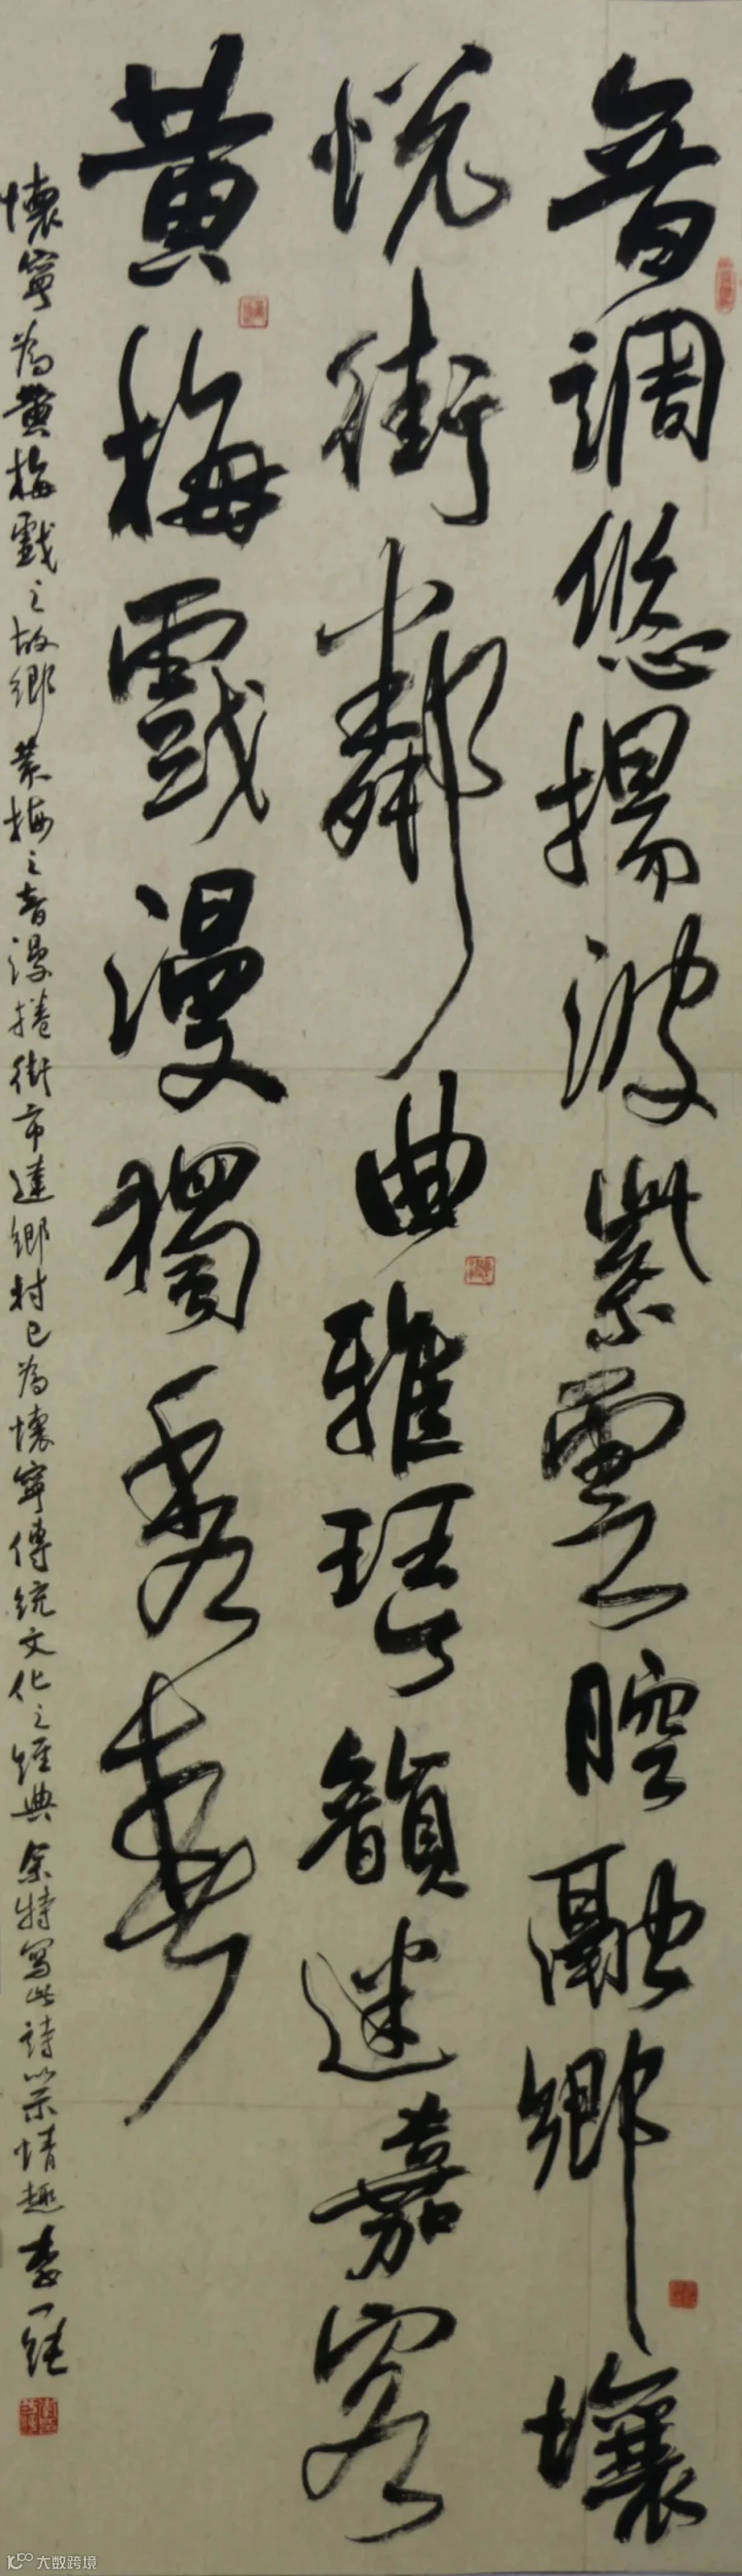 音調悠揚波紫雲腔融鄉壤
悅街鄰曲雅琴韻迷嘉客
黃梅戲漫獨秀春
懷寧為黃梅戲之故鄉黃梅之音漫捲街市達鄉村已為懷寧傳統文化之經典余特寫此詩以示情趣李一
大数跨境